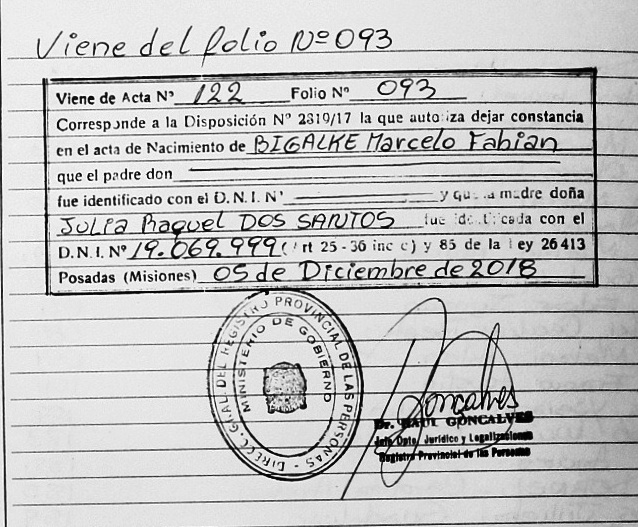 Viene del folio Nº 093
Viene de Acta Nº 122 Folio Nº 093
Corresponde a la Disposición Nº 2819/17 la que autoriza dejar constancia
en el acta de Nacimiento de BIGALKE Marcelo Fabian
que el padre don
fue identificado con el D.N.I. Nº y que la madre doña
Julia Raquel DOS SANTOS fue identificada con el
D.N.I. Nº 19.069.999 (Art 25-36 inc c) y 85 de la ley 26413
Posadas (Misiones) 05 de Diciembre de 2018
DIRECC. GRAL. DEL REGISTRO PROVINCIAL DE LAS PERSONAS -
MINISTERIO DE GOBIERNO
Goncalves
Dr. RAUL GONCALVES
Jefe Dpto. Jurídico y Legalizaciones
Registro Provincial de las Personas